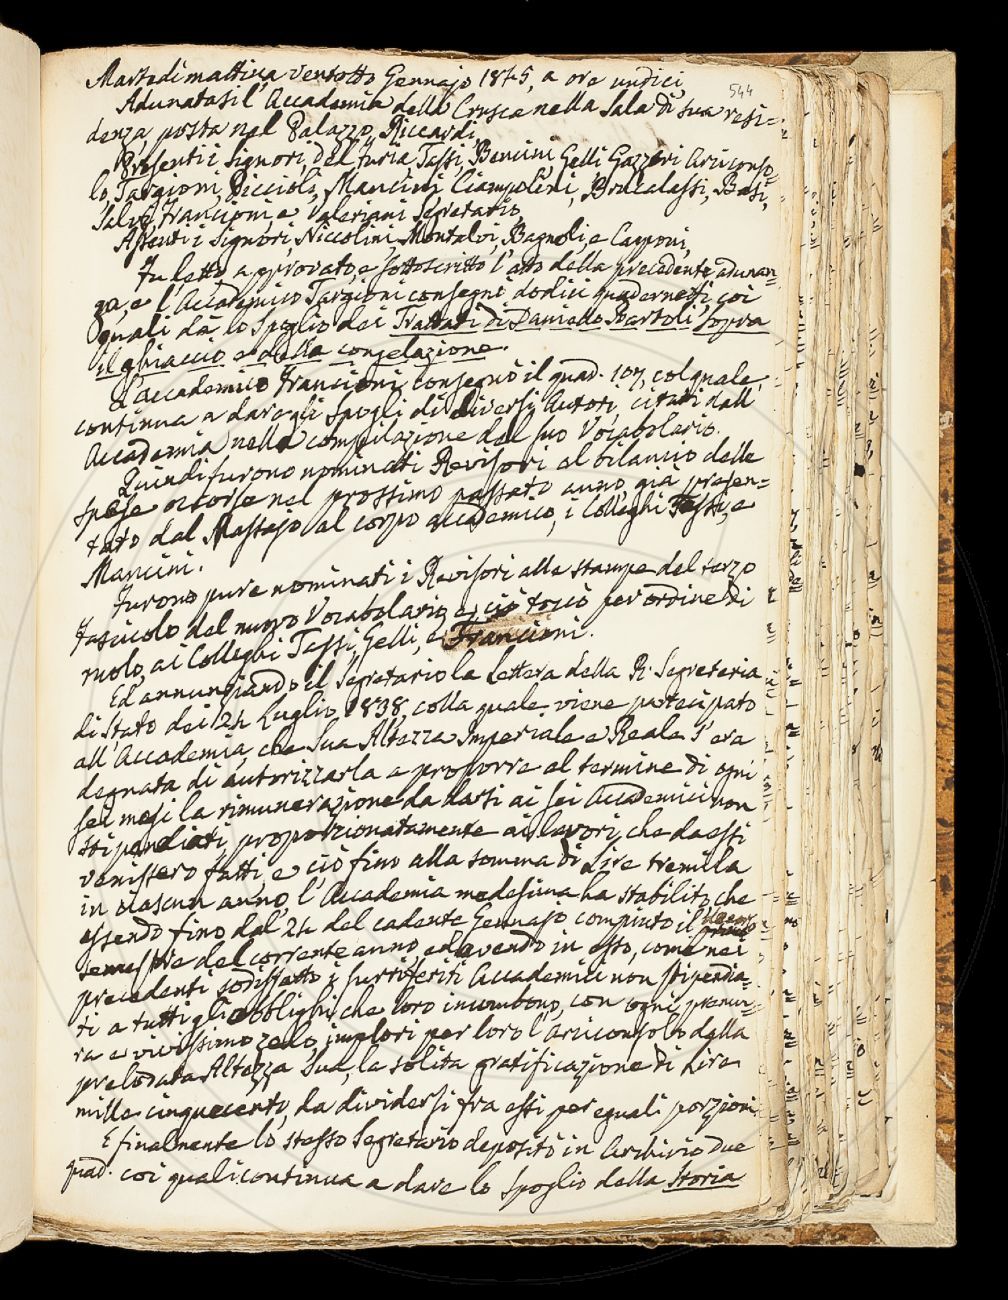 544
Martedì mattina ventotto Gennajo 1845, a ore undici,
Adunatasi l'Accademia della Crusca nella Sala di sua resi=
denza, posta nel Palazzo Riccardi,
Presenti i Signori, Del Furia, Tassi, Bencini, Gelli, Gazzeri Arciconso=
lo, Targioni, Piccioli, Mancini, Ciampolini, Brucalassi, Basi,
Salvi, Francioni, e Valeriani Segretario,
Assenti i Signori Niccolini, Montalvi, Bagnoli, e Capponi,
Fu letto, approvato, e sottoscritto l'atto della precedente adunan=
za, e l'Accademico Targioni consegnò dodici quadernetti, coi
quali dà lo Spoglio dei Trattati di Daniello Bartoli sopra
il ghiaccio e della congelazione.
L'accademico Francioni consegnò il quad. 107, col quale
continua a dare gli Spogli di diversi Autori, citati dall'
Accademia nella compilazione del suo Vocabolario.
Quindi furono nominati Revisori al bilancio delle
spese occorse nel prossimo passato anno già presen=
tato dal Massajo al corpo accademico, i Colleghi Tassi, e
Mancini.
Furono pure nominati i Revisori alle stampe del terzo
fascicolo del nuovo Vocabolario, e ciò toccò per ordine di
ruolo, ai Colleghi Tassi, Gelli, e Francioni.
Ed annunziando il Segretario la Lettera della R. Segreteria
di Stato dei 24 Luglio 1838, colla quale viene partecipato
all'Accademia, che Sua Altezza Imperiale e Reale s'era
degnata di autorizzarla a proporre al termine di ogni
sei mesi la rimunerazione da darsi ai sei Accademici non
stipendiati, proporzionatamente ai lavori, che da essi
venissero fatti, e ciò fino alla somma di Lire tremila
in ciascun anno, l'Accademia medesima ha stabilito, che
essendo fino dal 24 del cadente Gennajo compiuto il
semestre del corrente anno, ed avendo in esso, come nei
precedenti sodisfatto i surriferiti Accademici non stipendia=
ti a tutti gli obblighi, che loro incombono, con ogni premu=
ra e vivissimo zelo, implori per loro l'Arciconsolo dalla
prelodata Altezza Sua, la solita gratificazione di Lire
mille cinquecento, da dividersi fra essi per eguali porzioni.
E finalmente lo stesso Segretario depositò in Archivio due
quad. coi quali continua a dare lo Spoglio della Storia